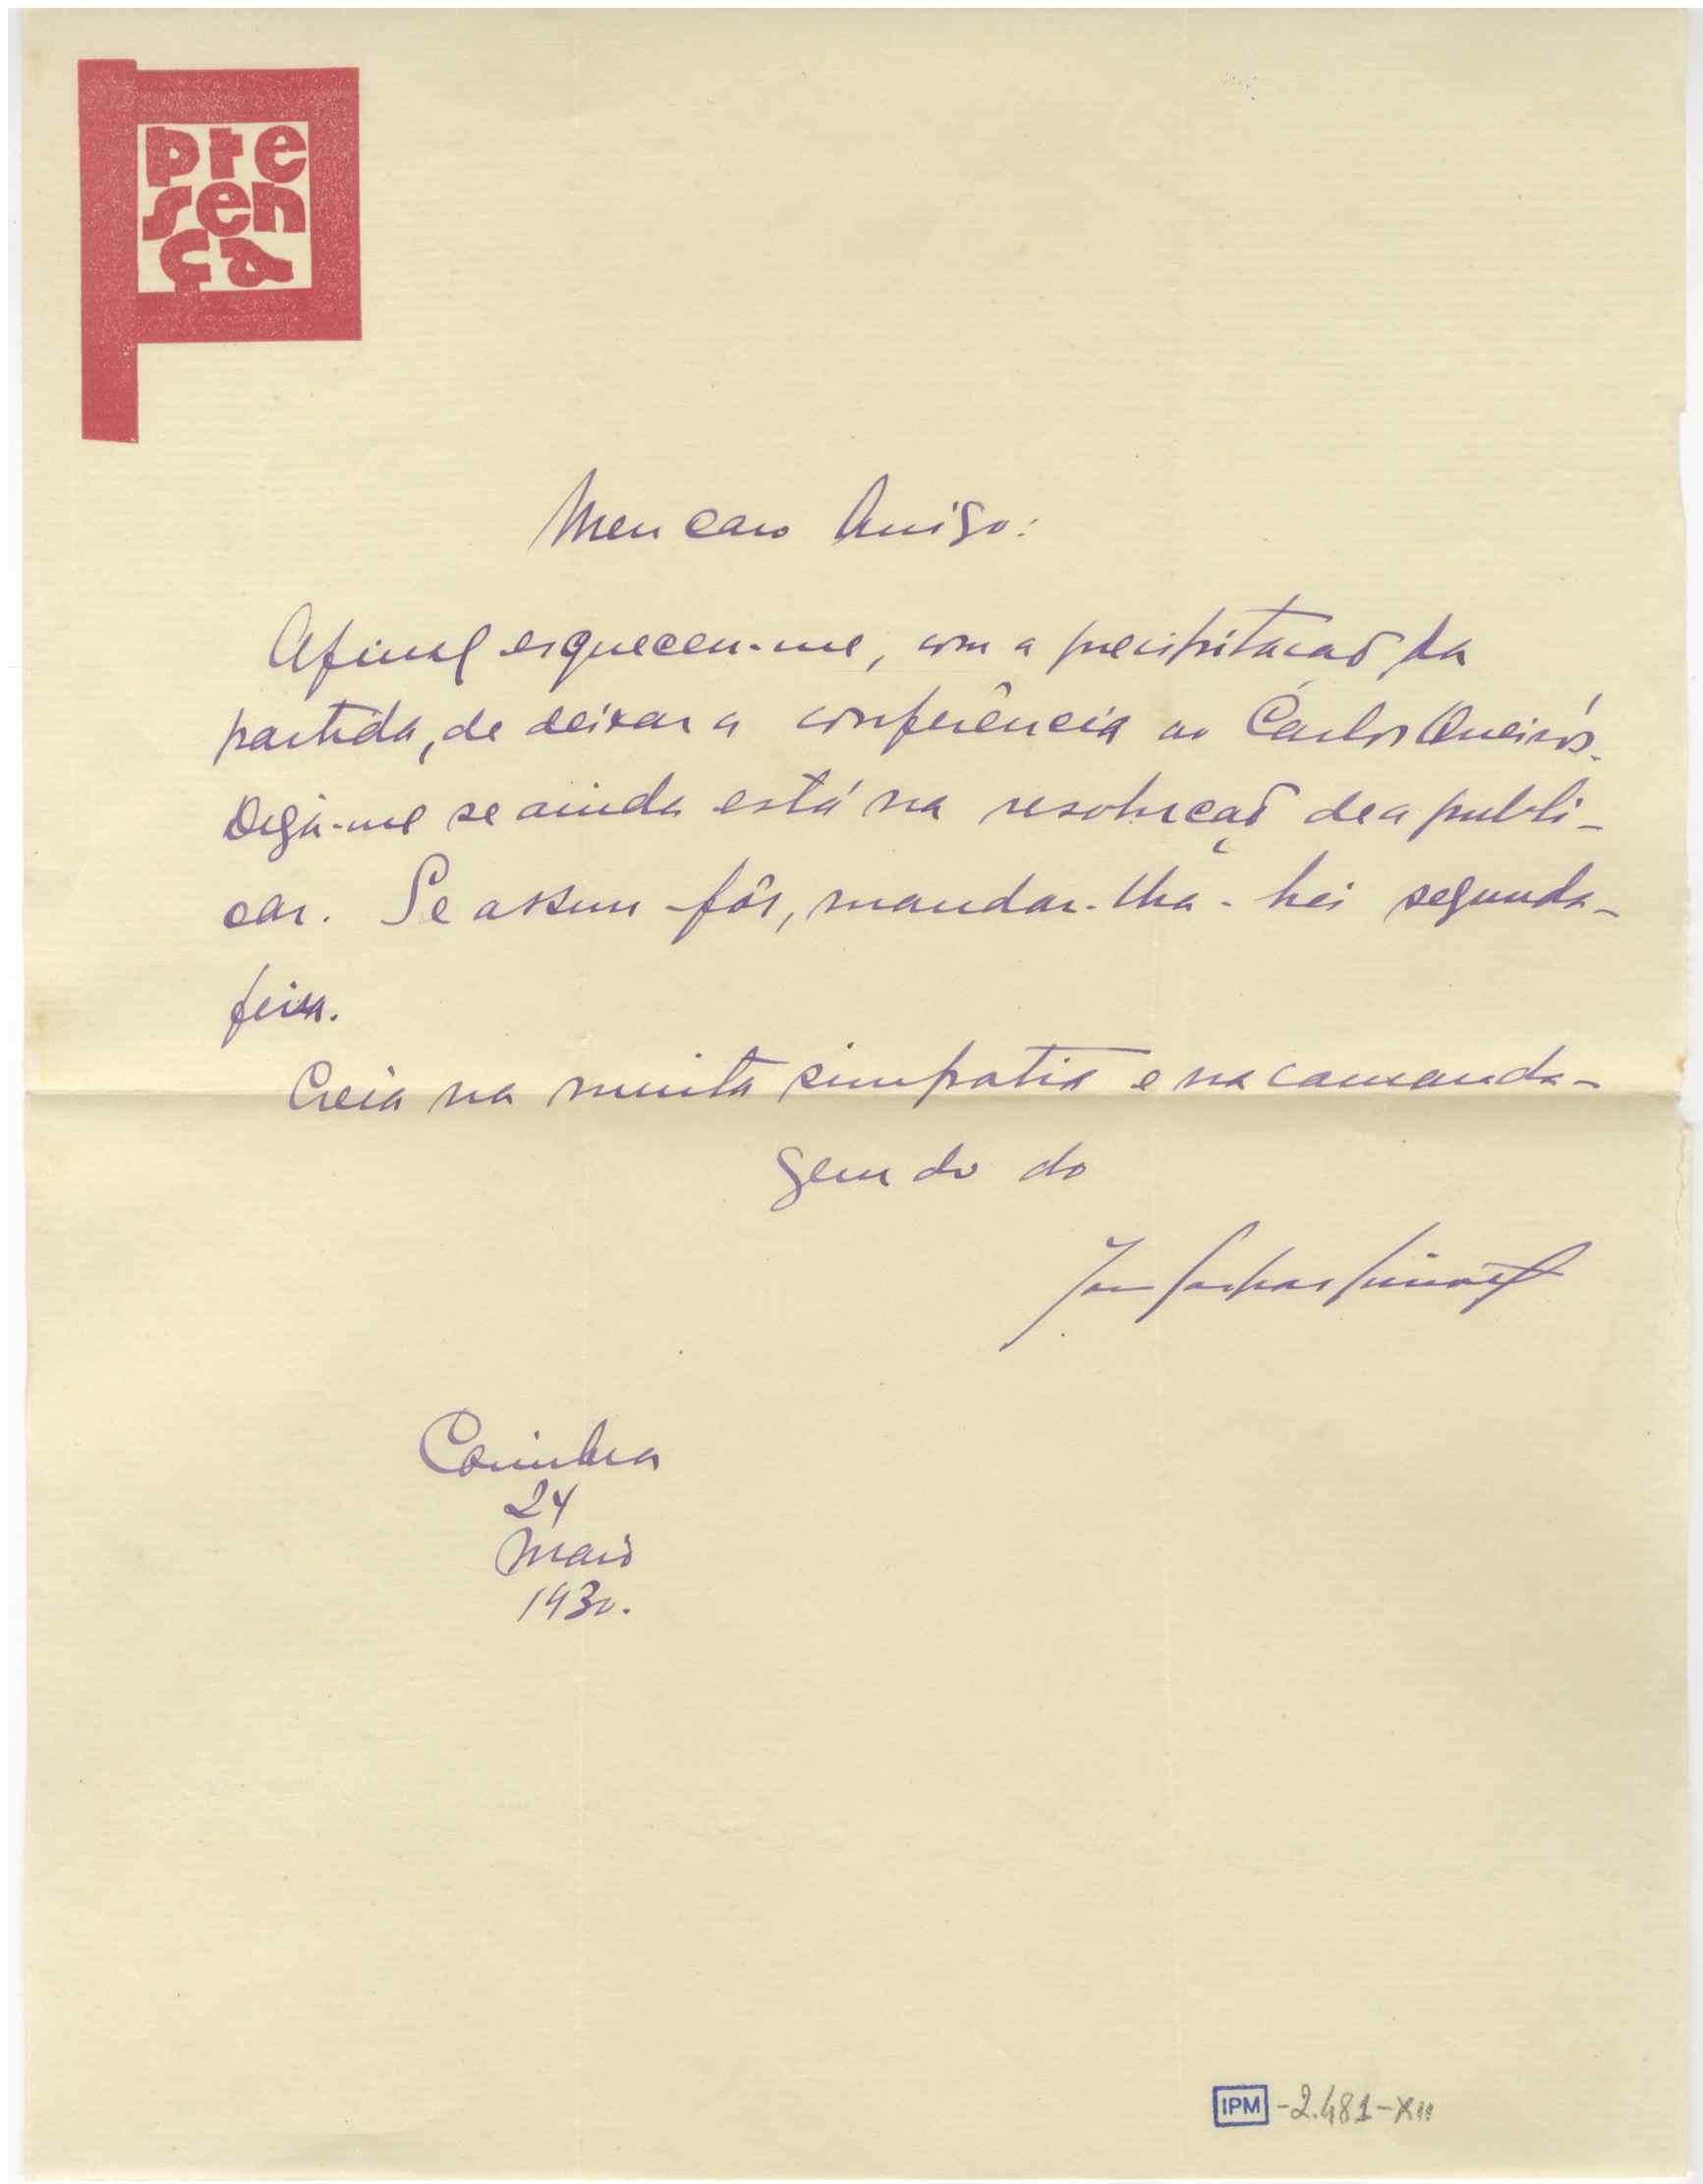 pre
sen
ça
Meu caro Amigo:
Afinal esqueceu-me, com a precipitação da
partida, de deixar a conferência ao Carlos Queirós.
Diga-me se ainda está na resolução de a publi-
car. Se assim fôr, mandar-lha-hei segunda-
feira.
Creia na muita simpatia e na camarada-
gem do do
João Gaspar Simões
Coimbra
24
Maio
1930.
IPM -2.481-XII